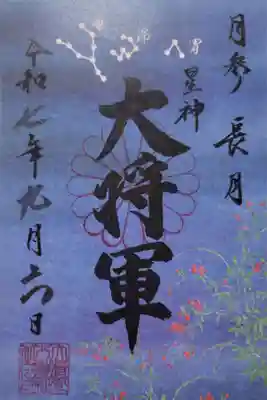 月参り 長月
星神
大将軍
令和七年九月六日